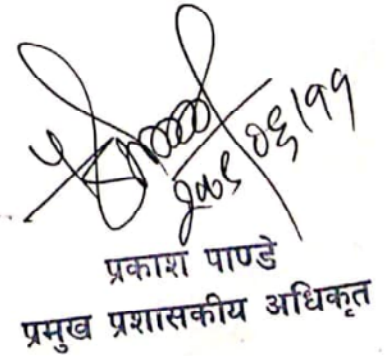 २०७९/०६/११
प्रकाश पाण्डे
प्रमुख प्रशासकीय अधिकृत